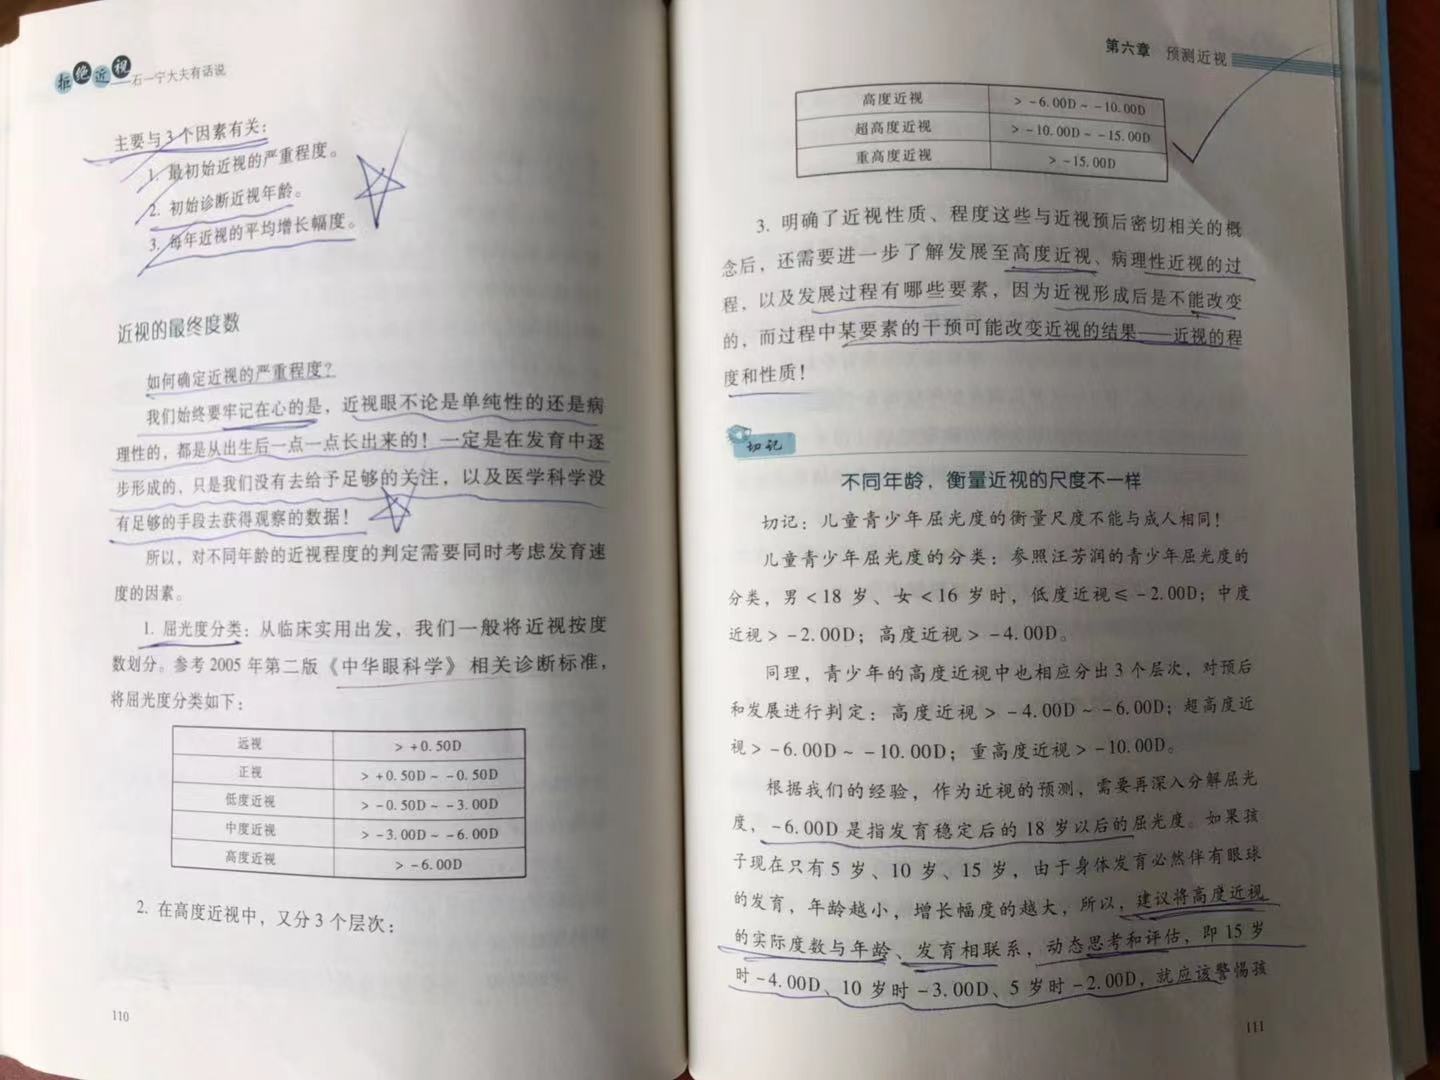 拒绝近视——石一宁大夫有话说
主要与3个因素有关：
1. 最初始近视的严重程度。
2. 初始诊断近视年龄。
3. 每年近视的平均增长幅度。
近视的最终度数
如何确定近视的严重程度？
我们始终要牢记在心的是，近视眼不论是单纯性的还是病
理性的，都是从出生后一点一点长出来的！一定是在发育中逐
步形成的，只是我们没有去给予足够的关注，以及医学科学没
有足够的手段去获得观察的数据！
所以，对不同年龄的近视程度的判定需要同时考虑发育速
度的因素。
1. 屈光度分类：从临床实用出发，我们一般将近视按度
数划分。参考2005年第二版《中华眼科学》相关诊断标准，
将屈光度分类如下：
远视 > +0.50D
正视 > +0.50D ~ -0.50D
低度近视 > -0.50D ~ -3.00D
中度近视 > -3.00D ~ -6.00D
高度近视 > -6.00D
2. 在高度近视中，又分3个层次：
110
第六章 预测近视
高度近视 > -6.00D ~ -10.00D
超高度近视 > -10.00D ~ -15.00D
重高度近视 > -15.00D
3. 明确了近视性质、程度这些与近视预后密切相关的概
念后，还需要进一步了解发展至高度近视、病理性近视的过
程，以及发展过程有哪些要素，因为近视形成后是不能改变
的，而过程中某要素的干预可能改变近视的结果——近视的程
度和性质！
切记
不同年龄，衡量近视的尺度不一样
切记：儿童青少年屈光度的衡量尺度不能与成人相同！
儿童青少年屈光度的分类：参照汪芳润的青少年屈光度的
分类，男<18岁、女<16岁时，低度近视≤-2.00D；中度
近视>-2.00D；高度近视>-4.00D。
同理，青少年的高度近视中也相应分出3个层次，对预后
和发展进行判定：高度近视>-4.00D~-6.00D；超高度近
视>-6.00D~-10.00D；重高度近视>-10.00D。
根据我们的经验，作为近视的预测，需要再深入分解屈光
度，-6.00D是指发育稳定后的18岁以后的屈光度。如果孩
子现在只有5岁、10岁、15岁，由于身体发育必然伴有眼球
的发育，年龄越小，增长幅度的越大，所以，建议将高度近视
的实际度数与年龄、发育相联系，动态思考和评估，即15岁
时-4.00D、10岁时-3.00D、5岁时-2.00D，就应该警惕孩
111